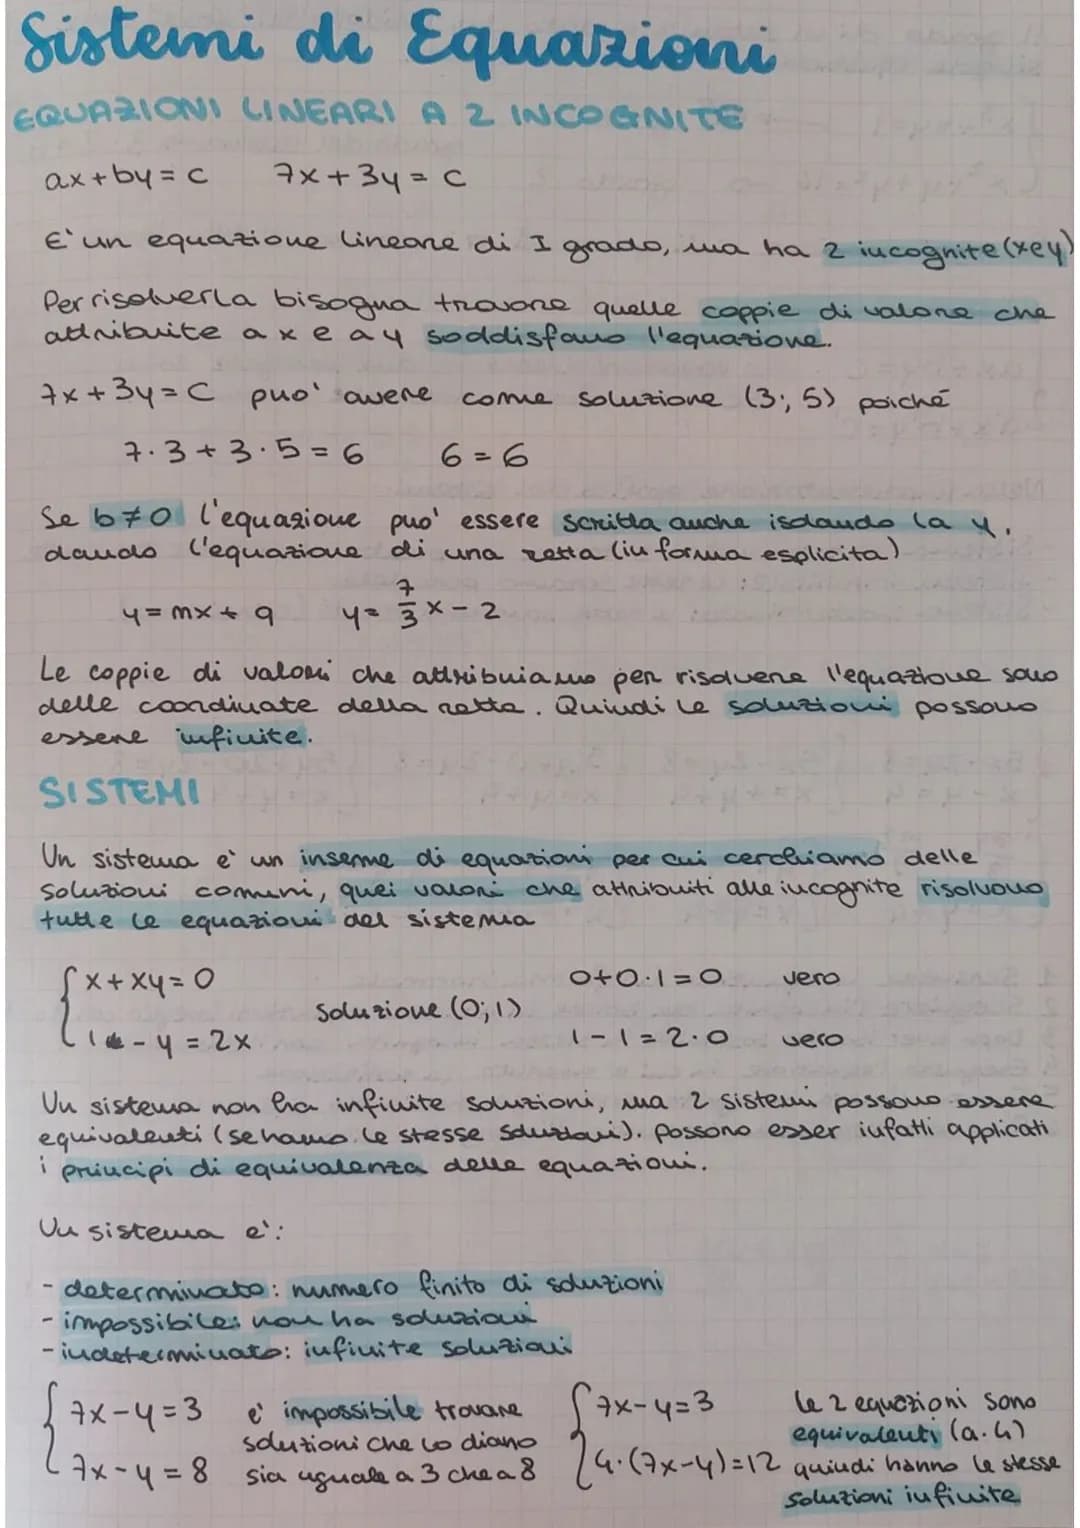 Sistemi di Equazioni
EQUAZIONI LINEARI A 2 INCOGNITE
ax+by = c 7x+3y = C
E' un equazione lineare di I grado, ma ha 2 incognite (x e y)
Per risolverla bisogna trovare quelle coppie di valore che
attribuite a x e a y soddisfano l'equazione.
7x+3y=C puo' avere come soluzione (3; 5) poiché
7·3+3·5=6 6=6
Se b≠0 l'equazione puo' essere scritta anche isolando la y,
dando l'equazione di una retta (in forma esplicita)
y=mx+q y= 7/3 x-2
Le coppie di valori che attribuiamo per risolvere l'equazione sono
delle coordinate della retta. Quindi le soluzioni possono
essere infinite.
SISTEMI
Un sistema e' un insieme di equazioni per cui cerchiamo delle
soluzioni comuni, quei valori che attribuiti alle incognite risolvono
tutte le equazioni del sistema
x+xy=0 0+0·1=0 vero
Soluzione (0; 1)
1-y=2x 1-1=2·0 vero
Un sistema non ha infinite soluzioni, ma 2 sistemi possono essere
equivalenti (se hanno le stesse soluzioni). Possono esser infatti applicati
i principi di equivalenza delle equazioni.
Un sistema e':
- determinato: numero finito di soluzioni
- impossibile: non ha soluzioni
- indeterminato: infinite soluzioni
7x-y=3 e' impossibile trovare 7x-y=3 le 2 equazioni sono
soluzioni che lo diano equivalenti (a·4)
7x-y=8 sia uguale a 3 che a 8 4·(7x-y)=12 quindi hanno le stesse
soluzioni infinite